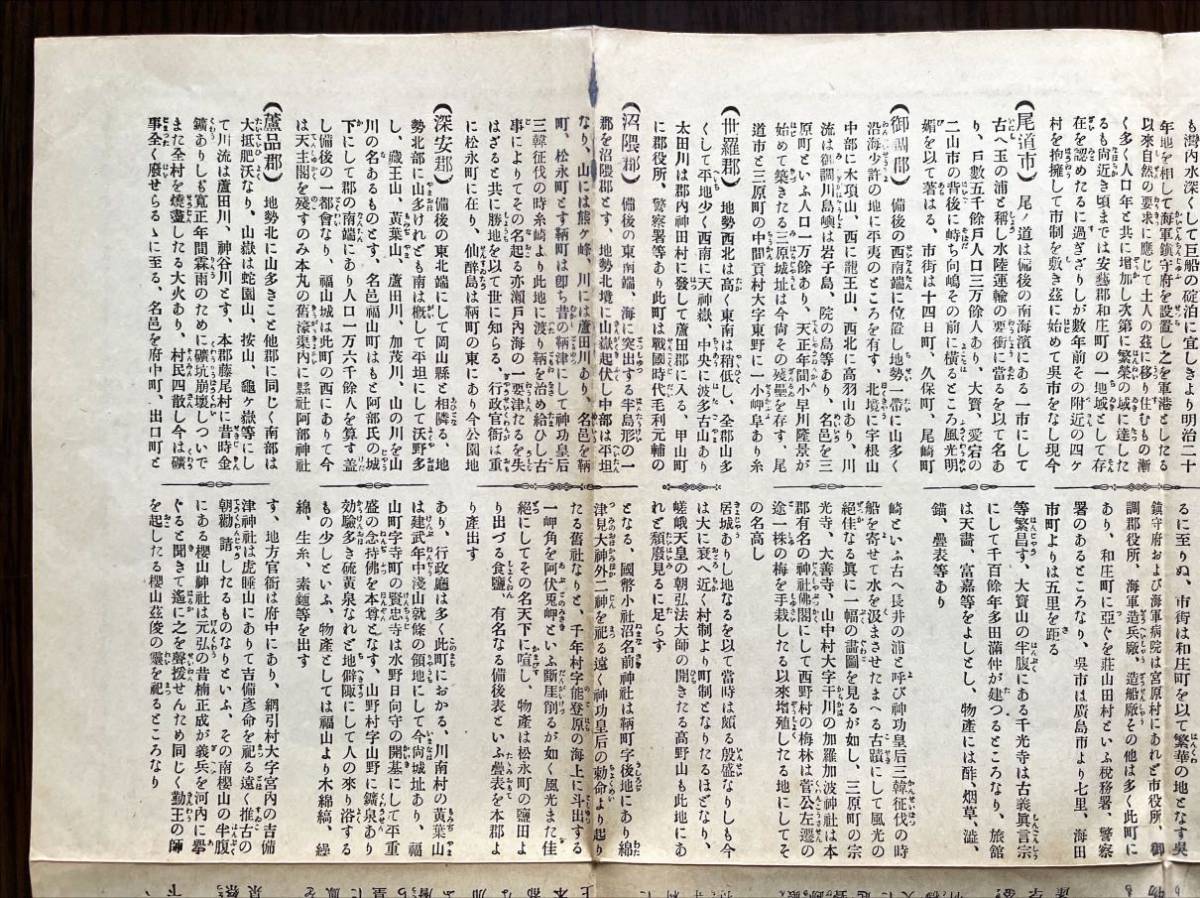 も灣内水深くして巨船の碇泊に宜しきより明治二十
年地を相して海軍鎮守府を設置し之を軍港としたる
以來自然の要求に應じて土人の茲に移り住むもの漸
く多く人口年と共に増加し次第に繁榮の域に達した
るも尙近き頃までは安藝郡和庄町の一地域として存
在を認めたるに過ぎざりしが數年前その附近の四ヶ
村を拘擁して市制を敷き茲に始めて呉市をなし現今
るに至りぬ、市街は和庄町を以て繁華の地となす呉
鎮守府および海軍病院は宮原村にあれど市役所、御
調郡役所、海軍造兵廠、造船廠その他は多く此町に
あり、和庄町に亞ぐを莊山田村といふ稅務署、警察
署のあるところなり、呉市は廣島市より七里、海田
市町よりは五里を距る
(尾道市) 尾ノ道は備後の南海濱にある一市にして
古へ玉の浦と稱し水陸運輸の要衝に當るを以て名あ
り、戶數五千餘戶人口三万餘人あり、大寶、愛宕の
二山市の背後に峙ち向嶋その前に橫るところ風光明
媚を以て著はる、市街は十四日町、久保町、尾崎町
等繁昌す、大寶山の半腹にある千光寺は古義眞言宗
にして千百餘年多田滿仲が建つるところなり、旅館
は天霱、富嘉等をよしとし、物產には酢、烟草、澁、
錨、疊表等あり
(御調郡) 備後の西南端に位置し地勢一帶に山多く
沿海少許の地に平夷のところを有す、北境に宇根山
中部に木項山、西に龍王山、西北に高羽山あり、川
流は御調川島嶼は岩子島、院の島等あり、名邑を三
原町といふ人口一万餘あり、天正年間小早川隆景が
始めて築きたる三原城址は今尙その殘壘を存す、尾
道市と三原町の中間貢村大字東野に一小岬阜あり糸
崎といふ古へ長井の浦と呼び神功皇后三韓征伐の時
船を寄せて水を汲まさせたまへる古蹟にして風光の
絕佳なる眞に一幅の畵圖を見るが如し、三原町の宗
光寺、大善寺、山中村大字干川の加羅加波神社は本
郡有名の神社佛閣にして西野村の梅林は菅公左遷の
途一株の梅を手栽したる以來增殖したる地にしてそ
の名高し
(世羅郡) 地勢西北は高く東南は稍低し、全郡山多
くして平地少く西南に天神嶽、中央に波多古山あり
太田川は郡內神田村に發して蘆田郡に入る、甲山町
に郡役所、警察署等あり此町は戰國時代毛利元輔の
居城ありし地なるを以て當時は頗る殷盛なりしも今
は大に衰へ近く村制より町制となりたるほどなり、
嵯峨天皇の朝弘法大師の開きたる高野山も此地にあ
れど類廢見るに足らず
(沼隈郡) 備後の東南端、海に突出する半島形の一
郡を沼隈郡とす、地勢北境に山嶽起伏し中部は平坦
なり、山には熊ヶ峰、川には蘆田川あり、名邑を鞆
町、松永町とす鞆町は卽ち昔の鞆津にして神功皇后
三韓征伐の時糸崎より此地に渡り鞆を治め給ひし古
事によりてその名起る亦瀨戶內海の一要津たるを失
はざると共に勝地を以て世に知らる、行政官衙は重
に松永町に在り、仙醉島は鞆町の東にあり今公園地
となる、國幣小社沼名前神社は鞆町字後地にあり綿
津見大神外二神を祀る遠く神功皇后の勅命より起り
たる舊社なりと、千年村字能登原の海上に斗出する
一岬角を阿伏兎岬といふ斷崖削るが如く風光また佳
絕にしてその名天下に喧し、物產は松永町の鹽田よ
り出づる食鹽 有名なる備後表といふ疊表を本郡よ
り產出す
(深安郡) 備後の東北端にして岡山縣と相隣る、地
勢北部に山多けれども南は槪して平坦にして沃野多
し、藏王山、黃葉山、蘆田川、加茂川、山の川を山
川の名あるものとす、名邑福山町はもと阿部氏の城
下にして郡の南端にあり人口一万六千餘人を算す蓋
し備後の一都會なり、福山城は此町の西にありて今
は天主閣を殘すのみ本丸の舊濠棄內に縣社阿部神社
あり、行政廳は多く此町におかる、川南村の黃葉山
は建武年中淺山就條の領地にして今尙城址あり、福
山町字寺町の賢忠寺は水野日向守の開基にして平重
盛の念持佛を本尊となす、山野村字山野に鑛泉あり
効驗多き硫黃泉なれど地僻陬にして人の來り浴する
もの少しといふ、物產としては福山より木綿縞、繰
綿、生糸、素麵等を出す
(蘆品郡) 地勢北に山多きこと他郡に同じく南部は
大抵肥沃なり、山嶽は蛇圓山、按山、龜ヶ嶽等にし
て川流は蘆田川、神谷川とす、本郡藤尾村に昔時金
鑛ありしも寬正年間霖雨のために礦坑崩壞しついで
また全村を燒盡したる大火あり、村民四散し今は礦
事全く廢せらるゝに至る、名邑を府中町、出口町と
す、地方官衙は府中にあり、網引村大字宮內の吉備
津神社は虎睡山にありて吉備彥命を祀る遠く推古の
朝勸請したるものなりといふ、その南櫻山の半腹
にある櫻山神社は元弘の昔楠正成が義兵を河內に擧
ぐると聞きて遙に之を聲援せんため同じく勤王の師
を起したる櫻山茲俊の靈を祀るところなり